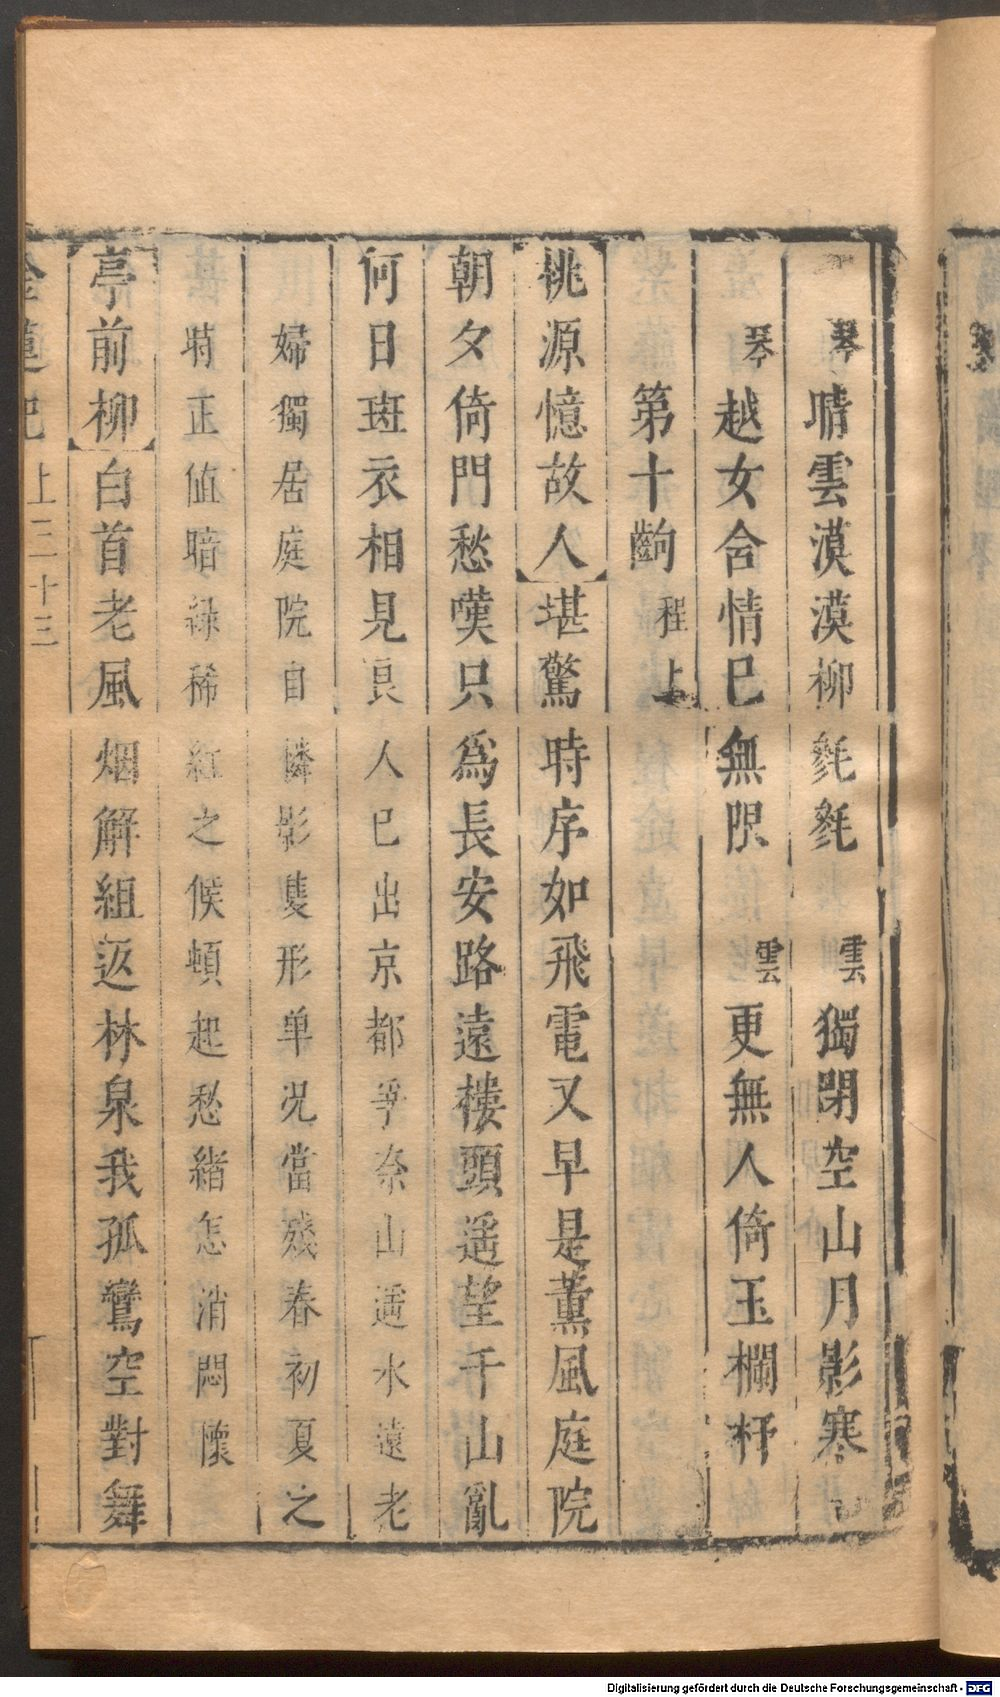 琴晴雲漠漠柳毿毿　雲獨閉空山月影寒
琴越女含情已無限　雲更無人倚玉欄杆
第十齣　程上
桃源憶故人堪驚時序如飛電又早是薰風庭院
朝夕倚門愁嘆只為長安路遠樓頭遥望千山亂
何日斑衣相見良人已出京都爭奈山遥水遠老
婦獨居庭院自憐影隻形单况當殘春初夏之
時正值暗綠稀紅之候頓起愁緒怎消悶懷
亭前柳白首老風烟解組返林泉我孤鸞空對舞
金蓮記　上二十三
Digitalisierung gefördert durch die Deutsche Forschungsgemeinschaft - DFG